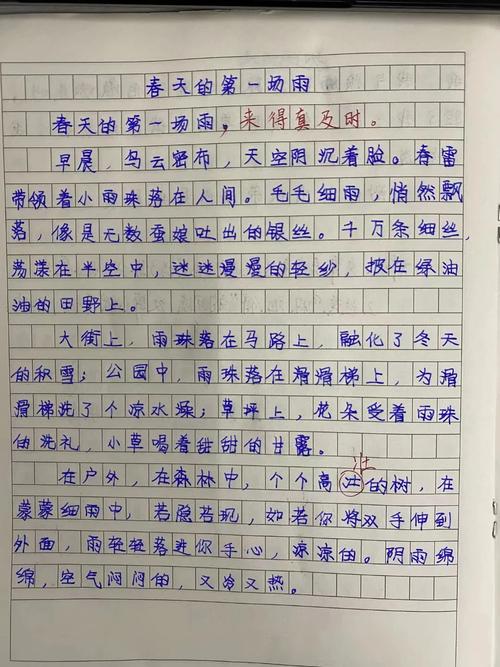 春天的第一场雨
春天的第一场雨，来得真及时。
早晨，乌云密布，天空阴沉着脸。春雷
带领着小雨珠落在人间。毛毛细雨，悄然飘
落，像是无数蚕娘吐出的银丝。千万条细丝，
荡漾在半空中，迷迷漫漫的轻纱，披在绿油
油的田野上。
大街上，雨珠落在马路上，融化了冬天
的积雪；公园中，雨珠落在滑滑梯上，为滑
滑梯洗了个凉水澡；草坪上，花朵受着雨珠
的洗礼，小草喝着甜甜的甘露。
壮
在户外，在森林中，个个高的树，在
蒙蒙细雨中，若隐若现，如若你将双手伸到
外面，雨轻轻落进你手心，凉凉的。阴雨绵
绵，空气闷闷的，又冷又热。